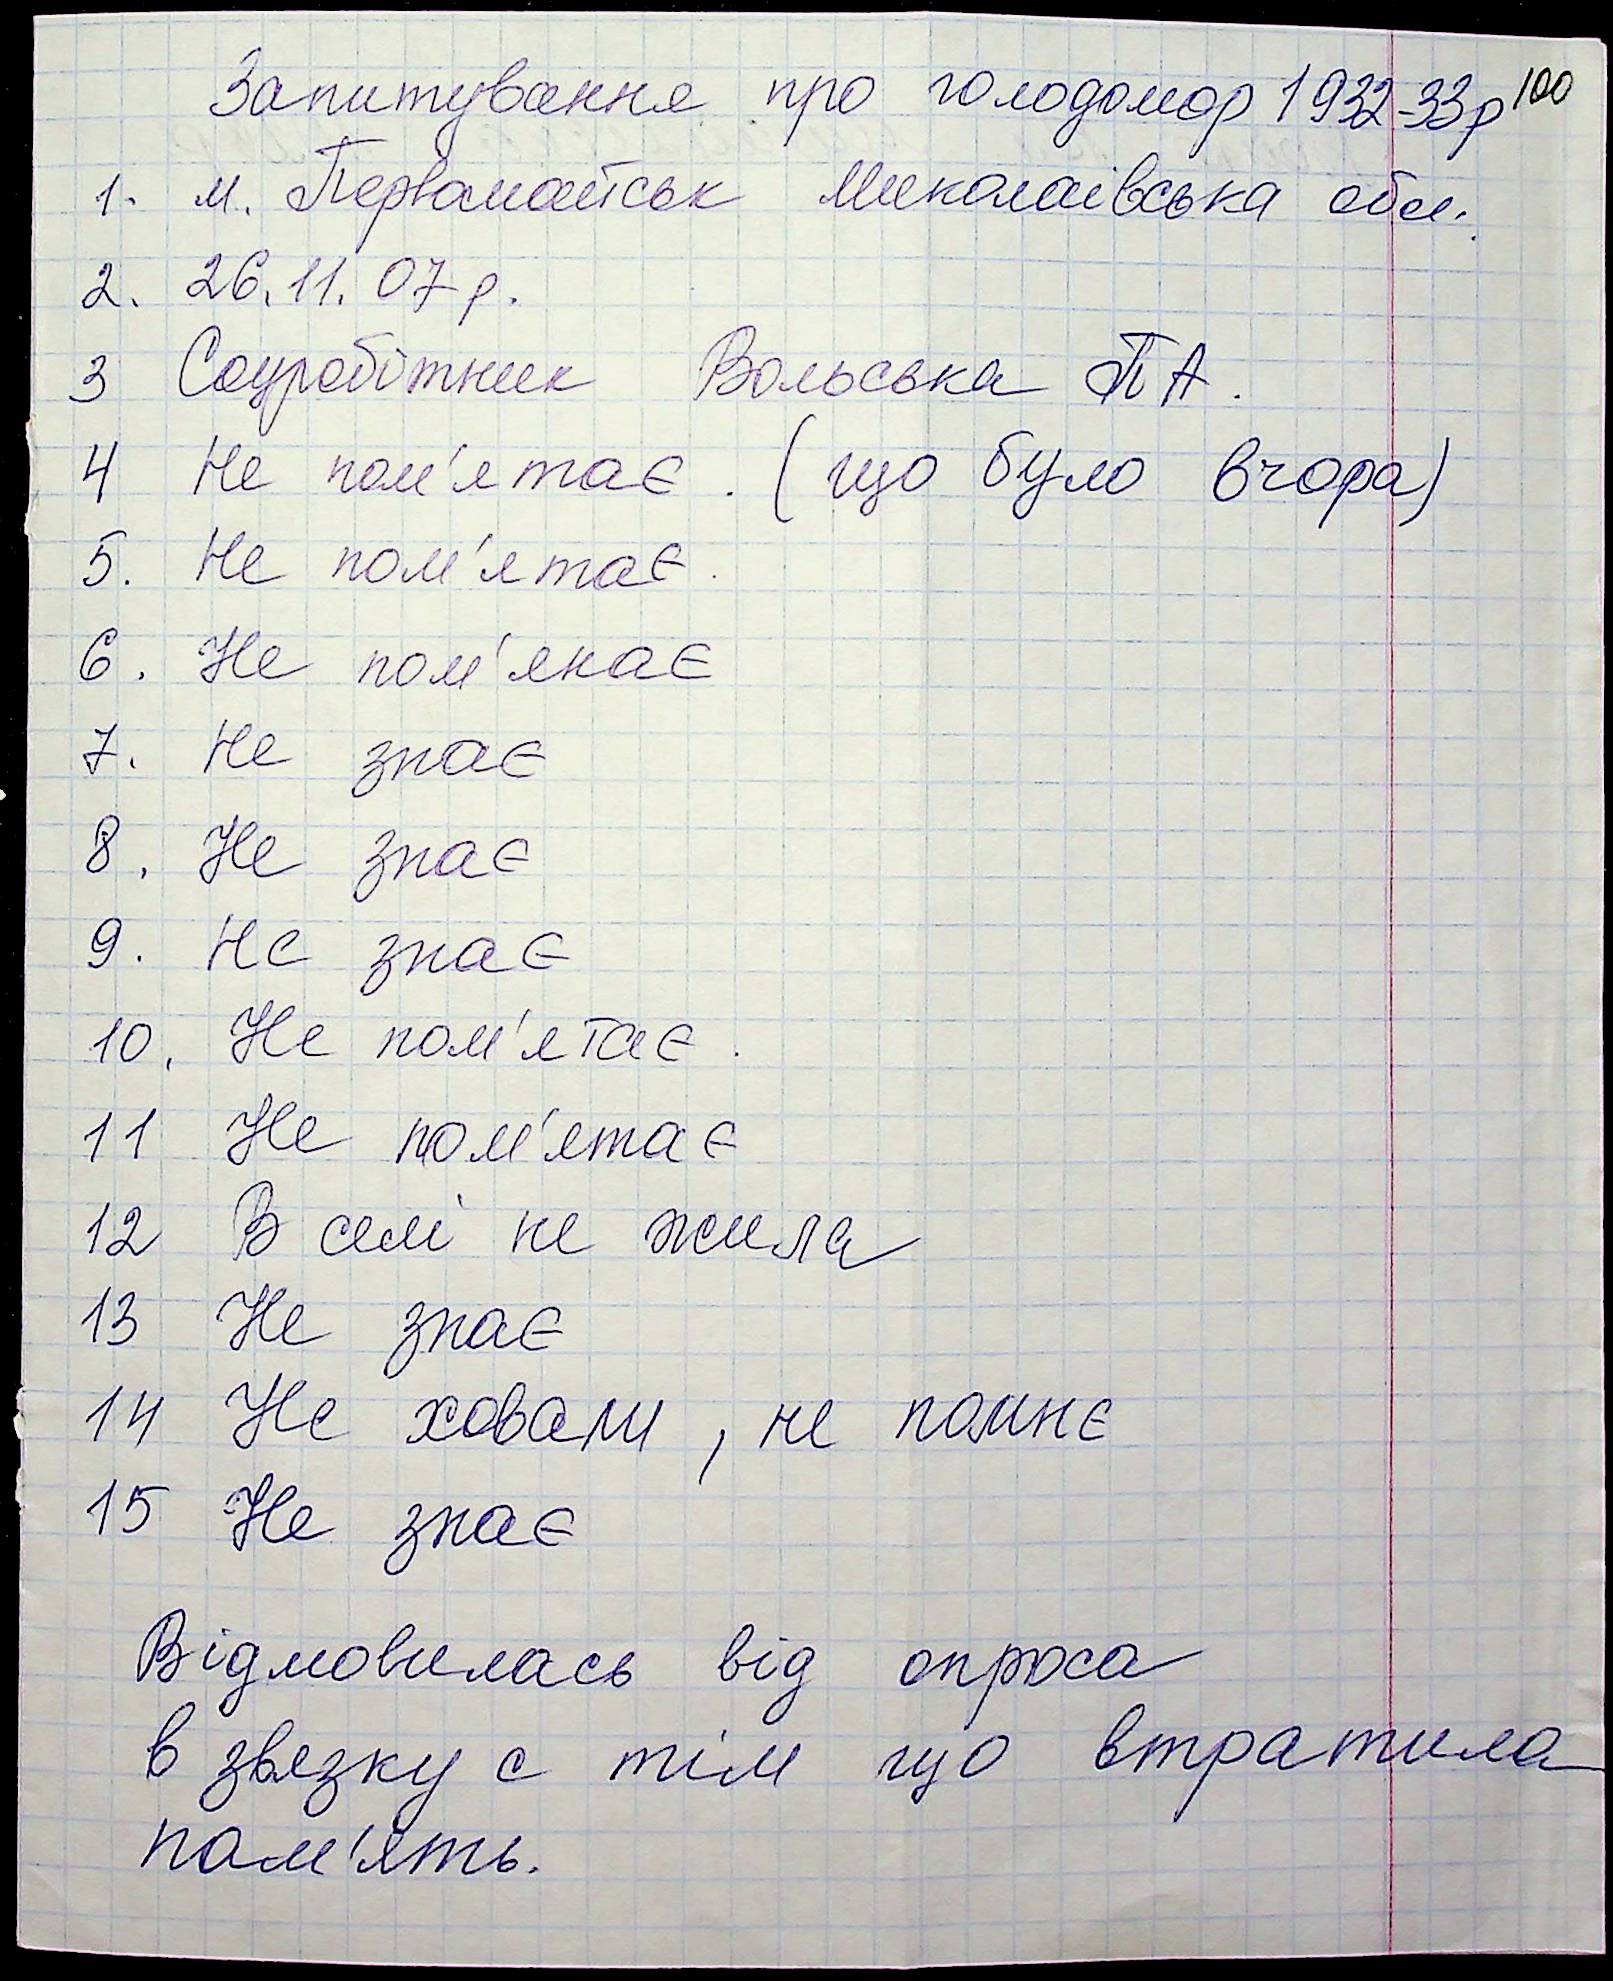 100
Запитування про голодомор 1932-33р
1. м. Первомайськ Миколаївська обл.
2. 26.11.07р.
3 Соцробітник Вольська П А.
4 Не пом'ятає. (що було вчора)
5. Не пом'ятає.
6. Не пом'янає
7. Не знає
8. Не знає
9. Не знає
10. Не пом'ятає.
11 Не пом'ятає
12 В селі не жила
13 Не знає
14 Не ховали, не помнє
15 Не знає
Відмовилась від опроса
в звязку с тім що втратила
пом'ять.